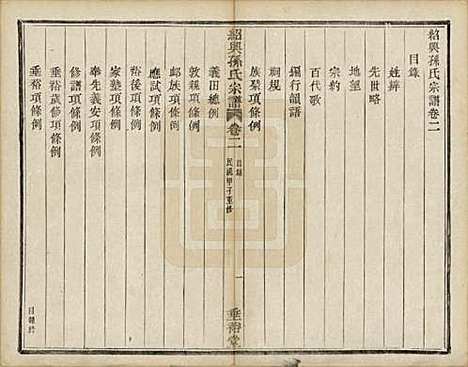 紹興孫氏宗譜卷二
目錄
姓辨
先世略
地望
宗約
百代歌
編行韻譜
祠規
族禁項條例
紹興孫氏宗譜
卷二
目錄
民國甲子重修
一
垂裕堂
義田總例
敦親項條例
卹族項條例
應試項條例
裕後項條例
家塾項條例
奉先義安項條例
修譜項條例
垂裕歲修項條例
垂裕項條例
目錄終